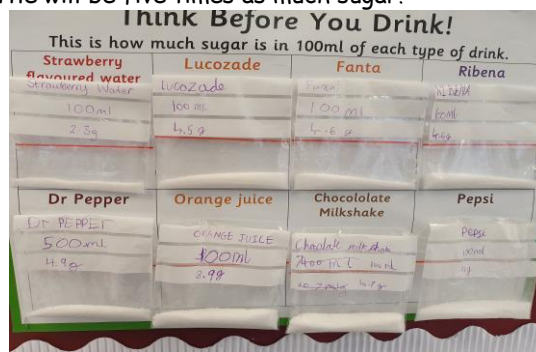 me will be five times as much sugar?
Think Before You Drink!
This is how much sugar is in 100ml of each type of drink.
Strawberry
flavoured water
Lucozade
Fanta
Ribena
Strawberry Water
100ml
2.3g
Lucozade
100 ml
4.5g
100 ml
4.6 g
4.6g
Dr Pepper
Orange juice
Chocololate
Milkshake
Pepsi
Dr PEPPER
500ml
4.9g
ORANGE JUICE
100ml
Chocolate milkshake
Pepsi